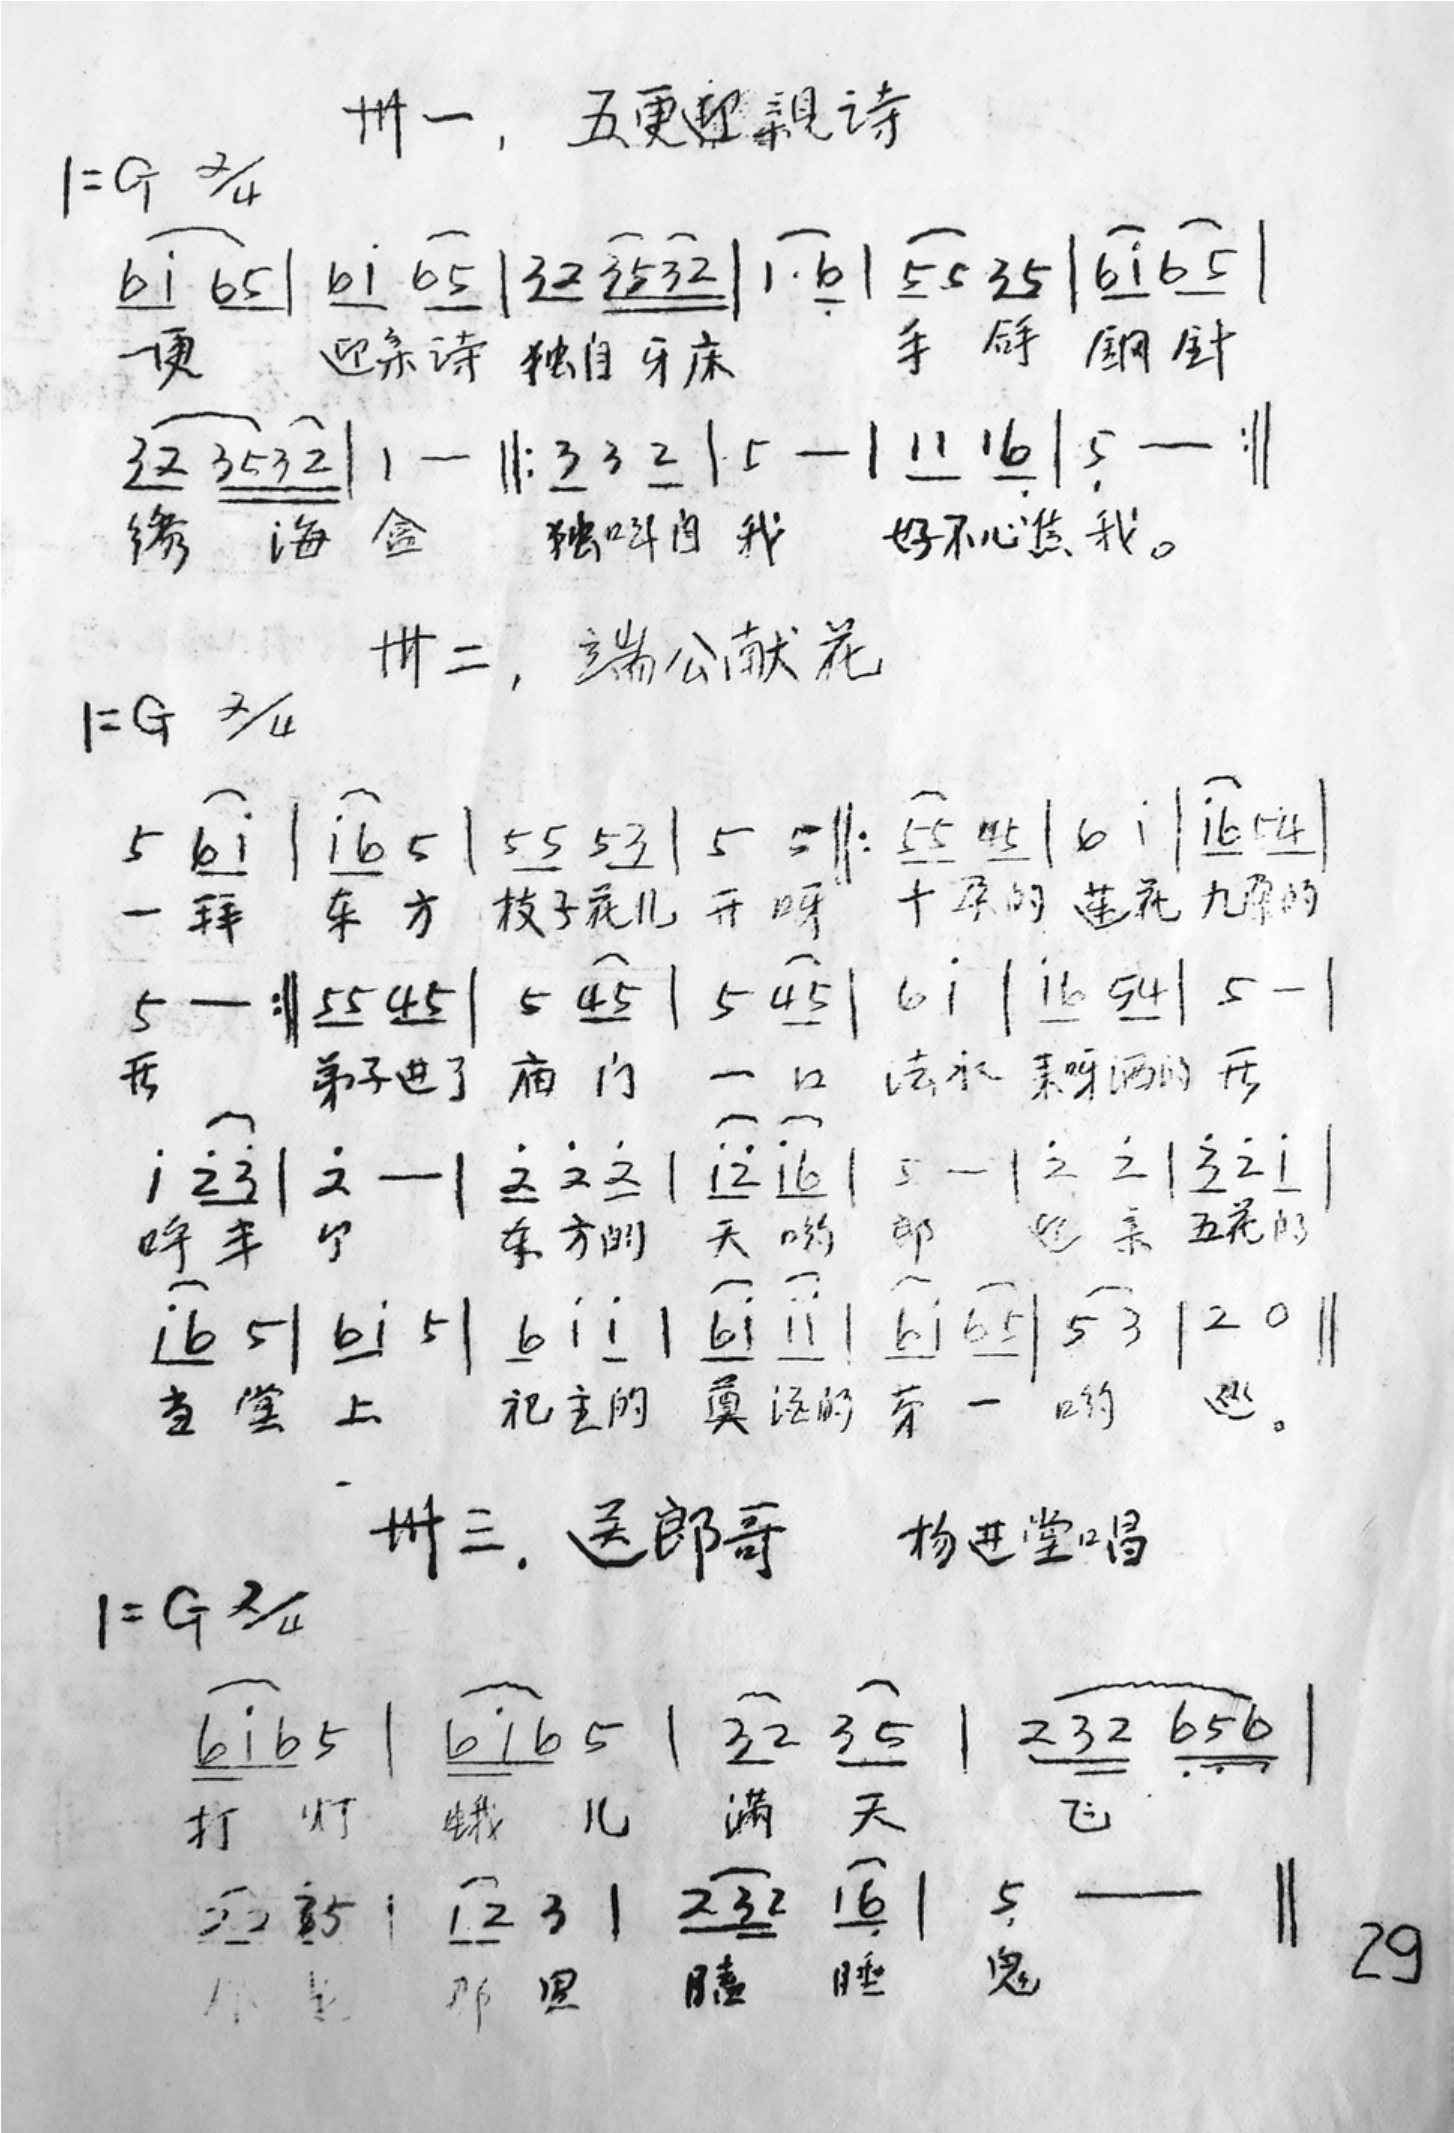 卌一，五更迎親诗
1=G 2/4
6i 65 | 6i 65 | 32 3532 | 1·6 | 55 35 | 6i 65 |
一更 迎亲诗 独自牙床 手 钢针
32 3532 | 1 — ‖: 3 3 2 | 5 — | 11 16 | 5 — :‖
绣 海 盒 独呌自我 好不心焦我。
卌二，端公献花
1=G 2/4
5 6i | i6 5 | 55 53 | 5 5 ‖: 55 45 | 6 i | i6 54 |
一拜 东方 枝子花儿 开呀 十朵的 莲花 九朵的
5 — :‖ 55 45 | 5 45 | 5 45 | 6 i | i6 54 | 5 — |
开 弟子进了 庙门 一口 法水 来呀洒的 开
i 2̇3̇ | 2̇ — | 2̇ 2̇ 2̇ | i2̇ i6 | 5 — | 2̇ 2̇ | 3̇ 2̇ i |
东方的 天哟 郎 亲 五花的
i6 5 | 6i 5 | 6 i i | 6i ii | 6i 65 | 5 3 | 2 0 ‖
当堂 上 祀主的 奠酒的 第一 哟 巡。
卌三．送郎哥 杨进堂唱
1=G 2/4
6i65 | 6i65 | 32 35 | 232 656 |
打 灯 蛾 儿 满 天 飞
35 | 12 3 | 232 16 | 5 — ‖
那里 瞌 睡 鬼
29